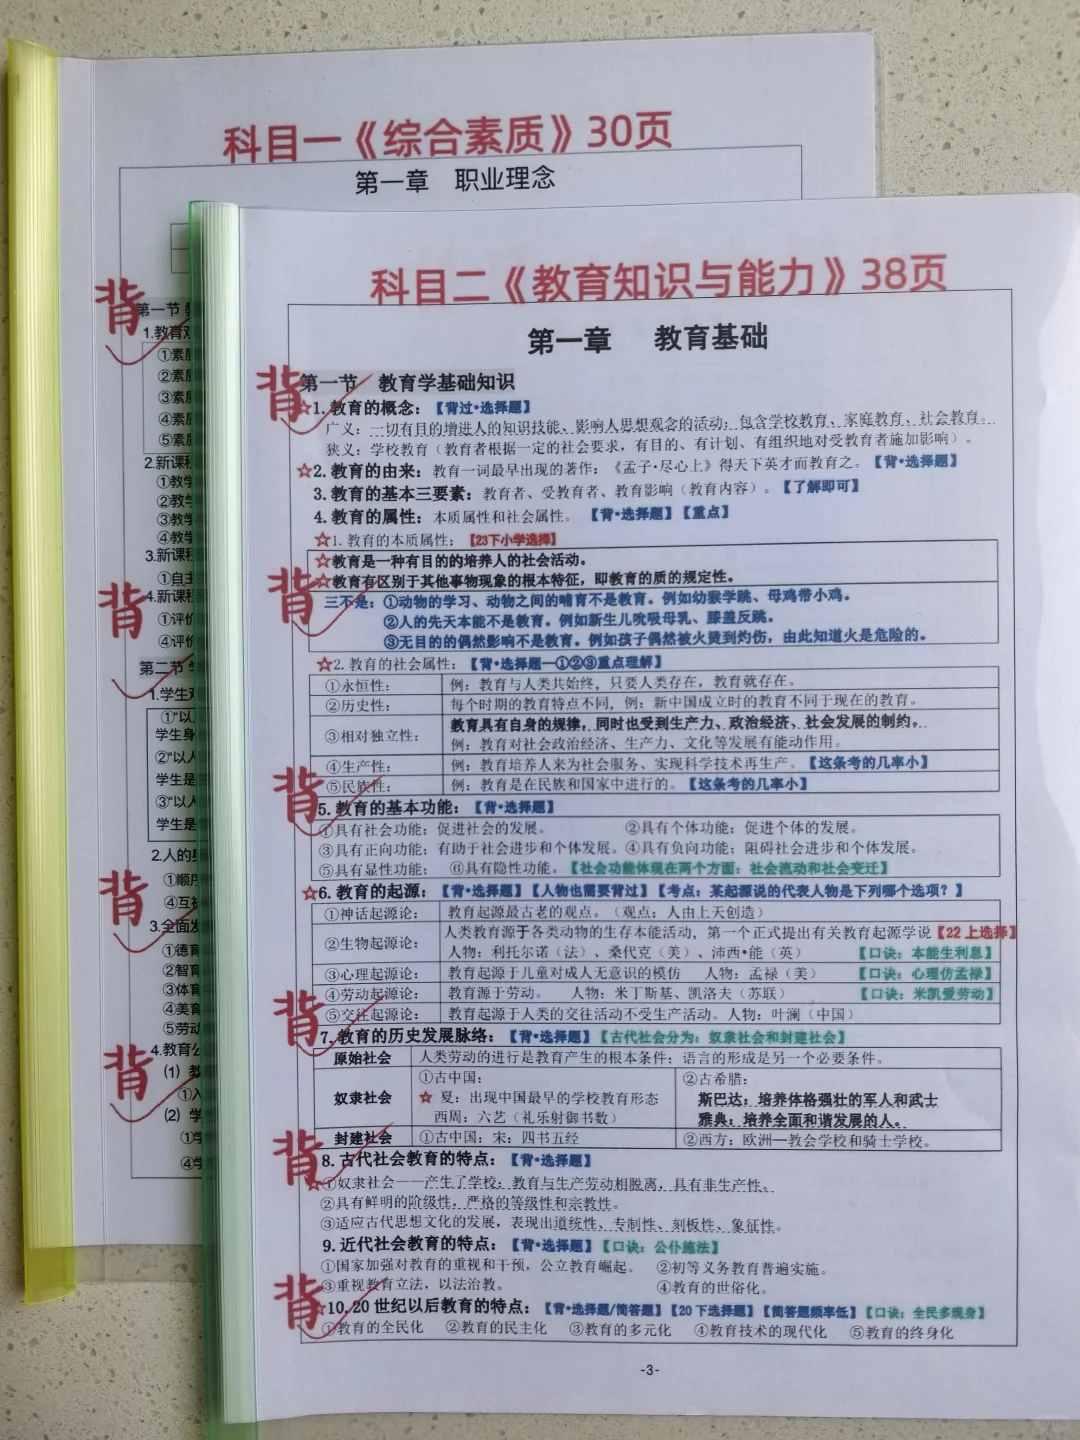 科目一《综合素质》30页
第一章 职业理念
背
第一节
1.教育观
①素质
②素质
③素质
④素质
⑤素质
2.新课程
①教学
②教学
③教学
④教学
3.新课程
①自主
背
4.新课程
①评价
④评价
第二节 学
1.学生观
①“以人
学生身
②“以人
学生是
③“以人
学生是
2.人的身
背
①顺序
④互补
3.全面发
①德育
②智育
③体育
④美育
⑤劳动
4.教育公
背
(1) 教
①入
(2) 学
①学
④学
科目二《教育知识与能力》38页
第一章 教育基础
背
第一节 教育学基础知识
☆1.教育的概念：【背过·选择题】
广义：一切有目的增进人的知识技能、影响人思想观念的活动；包含学校教育、家庭教育、社会教育。
狭义：学校教育（教育者根据一定的社会要求，有目的、有计划、有组织地对受教育者施加影响）。
☆2.教育的由来：教育一词最早出现的著作：《孟子·尽心上》得天下英才而教育之。【背·选择题】
3.教育的基本三要素：教育者、受教育者、教育影响（教育内容）。【了解即可】
4.教育的属性：本质属性和社会属性。【背·选择题】【重点】
☆1.教育的本质属性：【23下小学选择】
☆教育是一种有目的的培养人的社会活动。
背
☆教育有区别于其他事物现象的根本特征，即教育的质的规定性。
三不是：①动物的学习、动物之间的哺育不是教育。例如幼猴学跳、母鸡带小鸡。
②人的先天本能不是教育。例如新生儿吮吸母乳、膝盖反跳。
③无目的的偶然影响不是教育。例如孩子偶然被火烫到灼伤，由此知道火是危险的。
☆2.教育的社会属性：【背·选择题—①②③重点理解】
①永恒性： 例：教育与人类共始终，只要人类存在，教育就存在。
②历史性： 每个时期的教育特点不同，例：新中国成立时的教育不同于现在的教育。
③相对独立性： 教育具有自身的规律，同时也受到生产力、政治经济、社会发展的制约。
例：教育对社会政治经济、生产力、文化等发展有能动作用。
④生产性： 例：教育培养人来为社会服务、实现科学技术再生产。【这条考的几率小】
⑤民族性： 例：教育是在民族和国家中进行的。【这条考的几率小】
背
5.教育的基本功能：【背·选择题】
①具有社会功能：促进社会的发展。 ②具有个体功能：促进个体的发展。
③具有正向功能：有助于社会进步和个体发展。④具有负向功能：阻碍社会进步和个体发展。
⑤具有显性功能： ⑥具有隐性功能。【社会功能体现在两个方面：社会流动和社会变迁】
☆6.教育的起源：【背·选择题】【人物也需要背过】【考点：某起源说的代表人物是下列哪个选项？】
①神话起源论： 教育起源最古老的观点。（观点：人由上天创造）
②生物起源论： 人类教育源于各类动物的生存本能活动，第一个正式提出有关教育起源学说【22上选择】
人物：利托尔诺（法）、桑代克（美）、沛西·能（英） 【口诀：本能生利息】
③心理起源论： 教育起源于儿童对成人无意识的模仿 人物：孟禄（美） 【口诀：心理仿孟禄】
④劳动起源论： 教育源于劳动。 人物：米丁斯基、凯洛夫（苏联） 【口诀：米凯爱劳动】
⑤交往起源论： 教育起源于人类的交往活动不受生产活动。人物：叶澜（中国）
背
7.教育的历史发展脉络：【背·选择题】【古代社会分为：奴隶社会和封建社会】
原始社会 人类劳动的进行是教育产生的根本条件；语言的形成是另一个必要条件。
奴隶社会 ①古中国：
☆ 夏：出现中国最早的学校教育形态
西周：六艺（礼乐射御书数）
②古希腊：
斯巴达：培养体格强壮的军人和武士
雅典：培养全面和谐发展的人。
封建社会 ①古中国：宋：四书五经 ②西方：欧洲—教会学校和骑士学校。
背
8.古代社会教育的特点：【背·选择题】
☆①奴隶社会——产生了学校；教育与生产劳动相脱离，具有非生产性。
②具有鲜明的阶级性，严格的等级性和宗教性。
③适应古代思想文化的发展，表现出道统性、专制性、刻板性、象征性。
9.近代社会教育的特点：【背·选择题】【口诀：公仆施法】
①国家加强对教育的重视和干预，公立教育崛起。 ②初等义务教育普遍实施。
③重视教育立法，以法治教。 ④教育的世俗化。
背
☆10.20世纪以后教育的特点：【背·选择题/简答题】【20下选择题】【简答题频率低】【口诀：全民多现身】
①教育的全民化 ②教育的民主化 ③教育的多元化 ④教育技术的现代化 ⑤教育的终身化
-3-